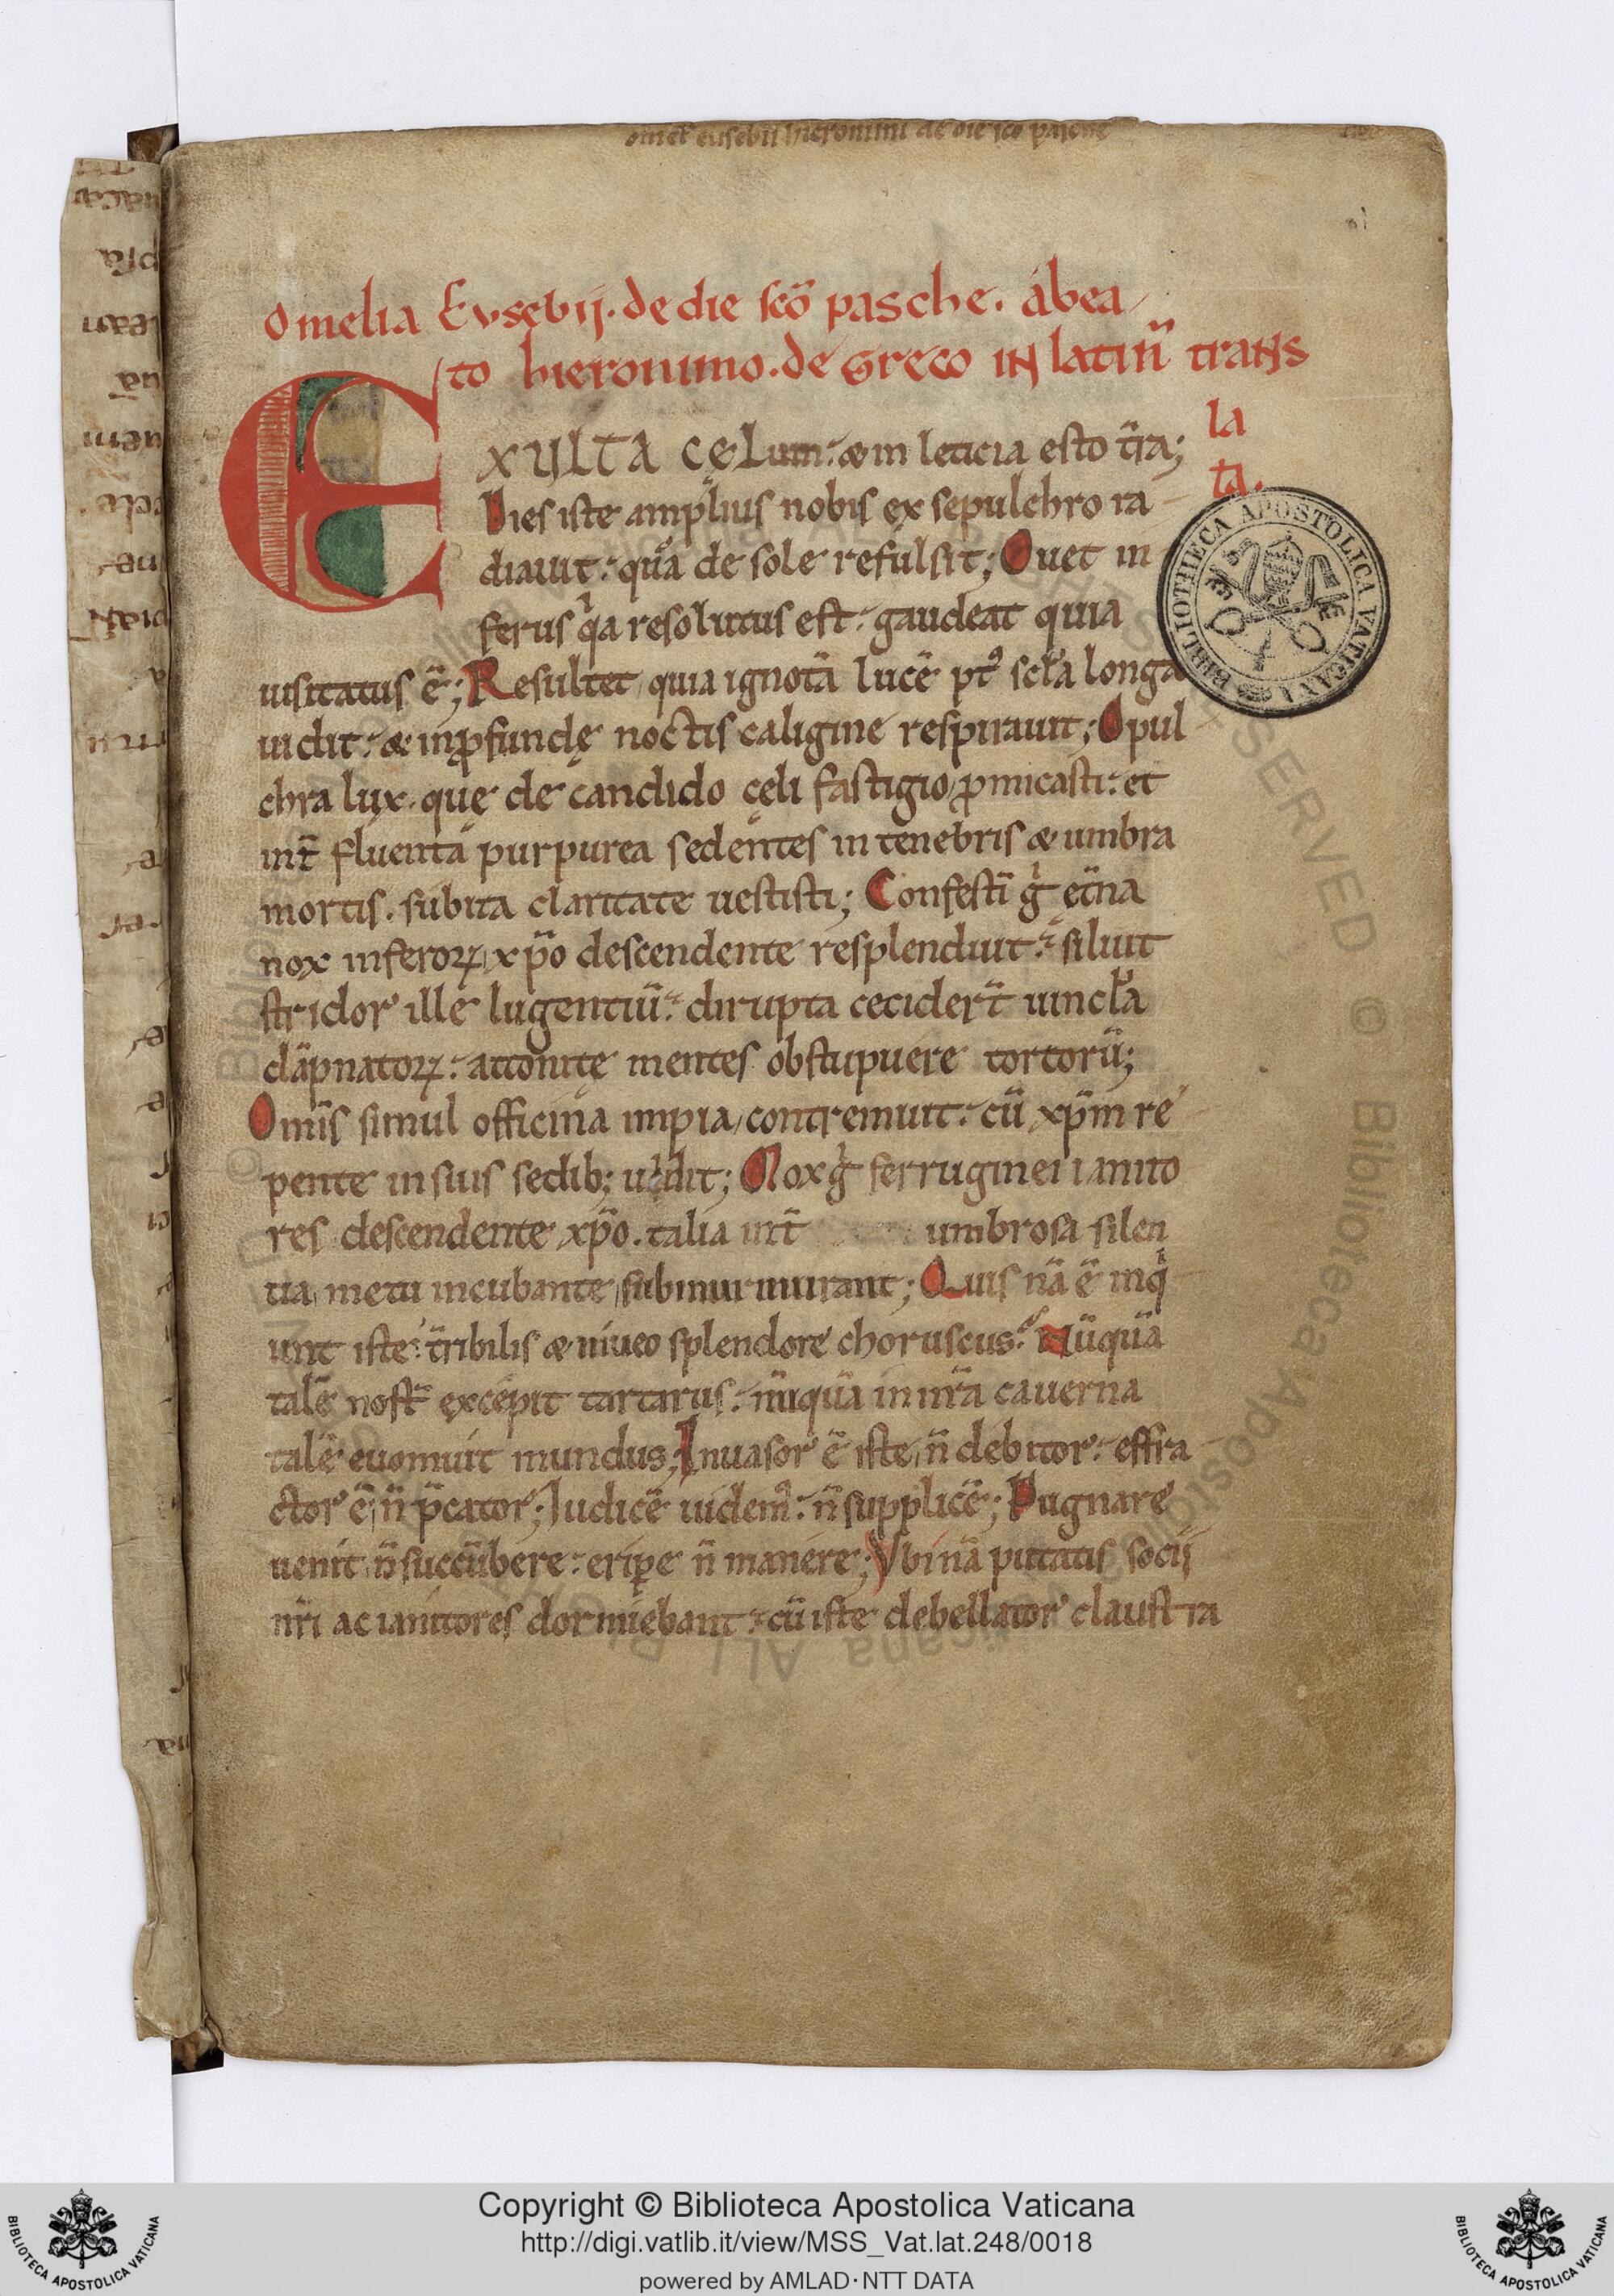 omel eusebii hieronimi de die sc̄o pasche
Omelia Eusebij. de die sc̄o pasche. a bea
to hieronimo. de Greco IN latin̄ traNs
la
ta.
EXULTA CĘLum: & in leticia esto t̄ra;
Dies iste amplius nobis ex sepulchro ra
diauit: quā de sole refulsit; Ouet in
ferus qa resolutus est: gaudeat quia
uisitatus ē; Resultet quia ignotā lucē pt᾿ scl̄a longa
uidit: & in ꝓfundę noctis caligine respirauit; O pul
chra lux. quę de candido cęli fastigio ꝓmicasti: et
int̄ fluenta purpurea sedentes in tenebris & umbra
mortis. subita claritate uestisti; Confestī g̊ et̄na
nox inferoꝝ xp̄o descendente resplenduit: siluit
stridor ille lugentiū: dirupta cecider̄t uincl̄a
dāpnatoꝝ: attonitę mentes obstupuere tortorū;
Om̄is simul officina impia contremuit: cū xp̄m re
pente in suis sedib; uidit; Mox g̊ ferruginei ianito
res descendente xp̄o. talia int̄ umbrosa silen
tia metu incubante submurmurant; Quis nā ē inq
unt iste t̄ribilis & niueo splendore choruscus? Nūquā
talē nost̄ excepit tartarus: nūquā in nr̄a cauerna
talē euomuit mundus; Inuasor ē iste n̄ debitor: effra
ctor ē n̄ p̄cator; Iudicē uidem᾿: n̄ supplicē; Pugnare
uenit n̄ succūbere: eripe n̄ manere; Vbi nā putatis socij
nr̄i ac ianitores dormiebant: cū iste debellator claustra
BIBLIOTHECA APOSTOLICA VATICANA
Copyright © Biblioteca Apostolica Vaticana
http://digi.vatlib.it/view/MSS_Vat.lat.248/0018
powered by AMLAD·NTT DATA
BIBLIOTECA APOSTOLICA VATICANA
BIBLIOTECA APOSTOLICA VATICANA